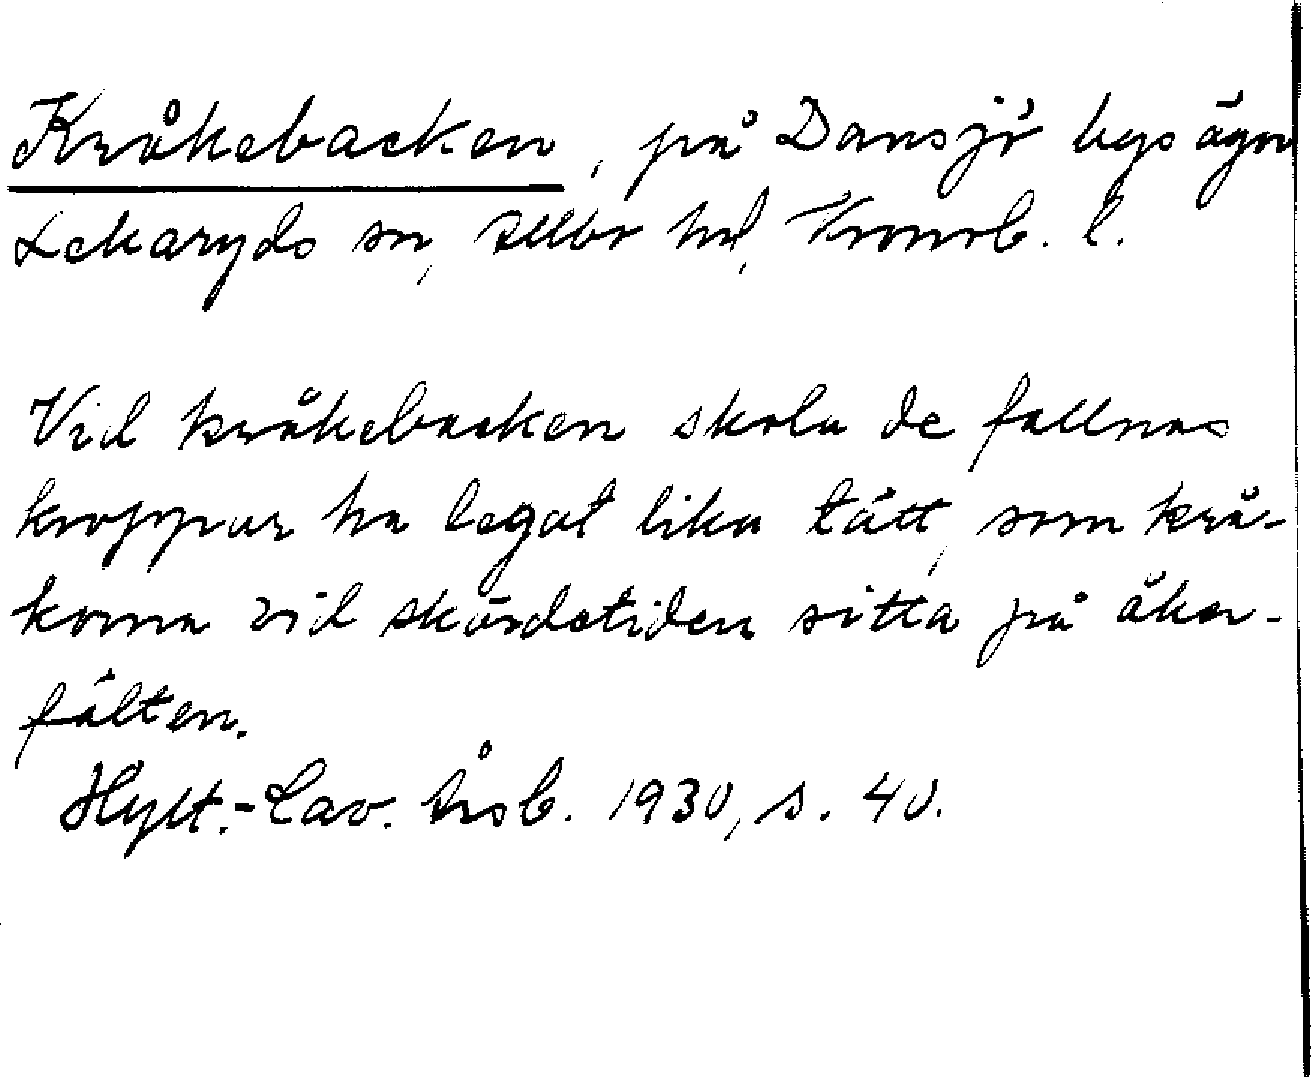 Kråkebacken, på Dansjö bys ägor
Lekaryds sn, Allbo hd, Kronob. l.
Vid kråkebacken skola de fallnas
kroppar ha legat lika tätt, som krå-
korna vid skördetiden sitta på åker-
fälten.
Hylt.-Cav. Årsb. 1930, s. 40.